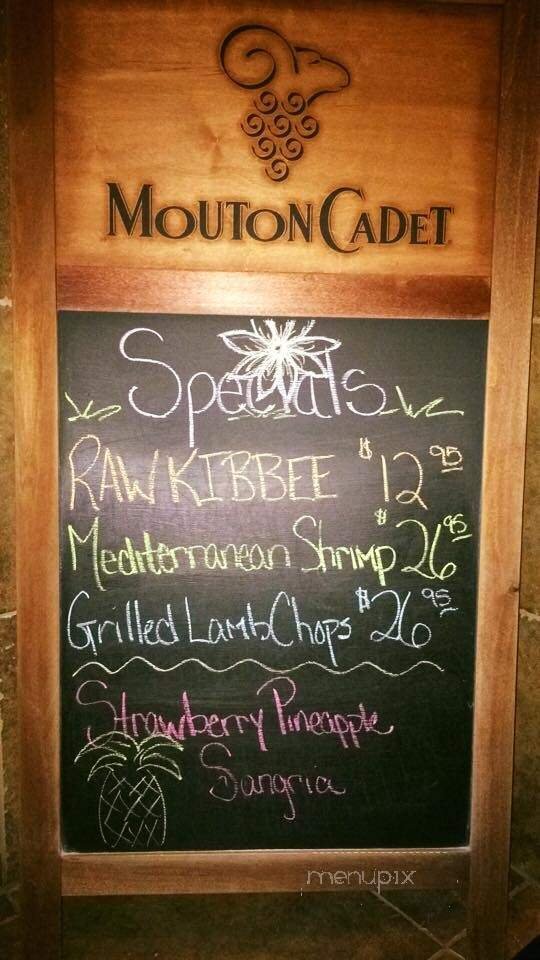 MOUTON CADET
Specials
RAW KIBBEE $12 95
Mediterranean Shrimp $26 95
Grilled Lamb Chops $26 95
Strawberry Pineapple
Sangria
menupix